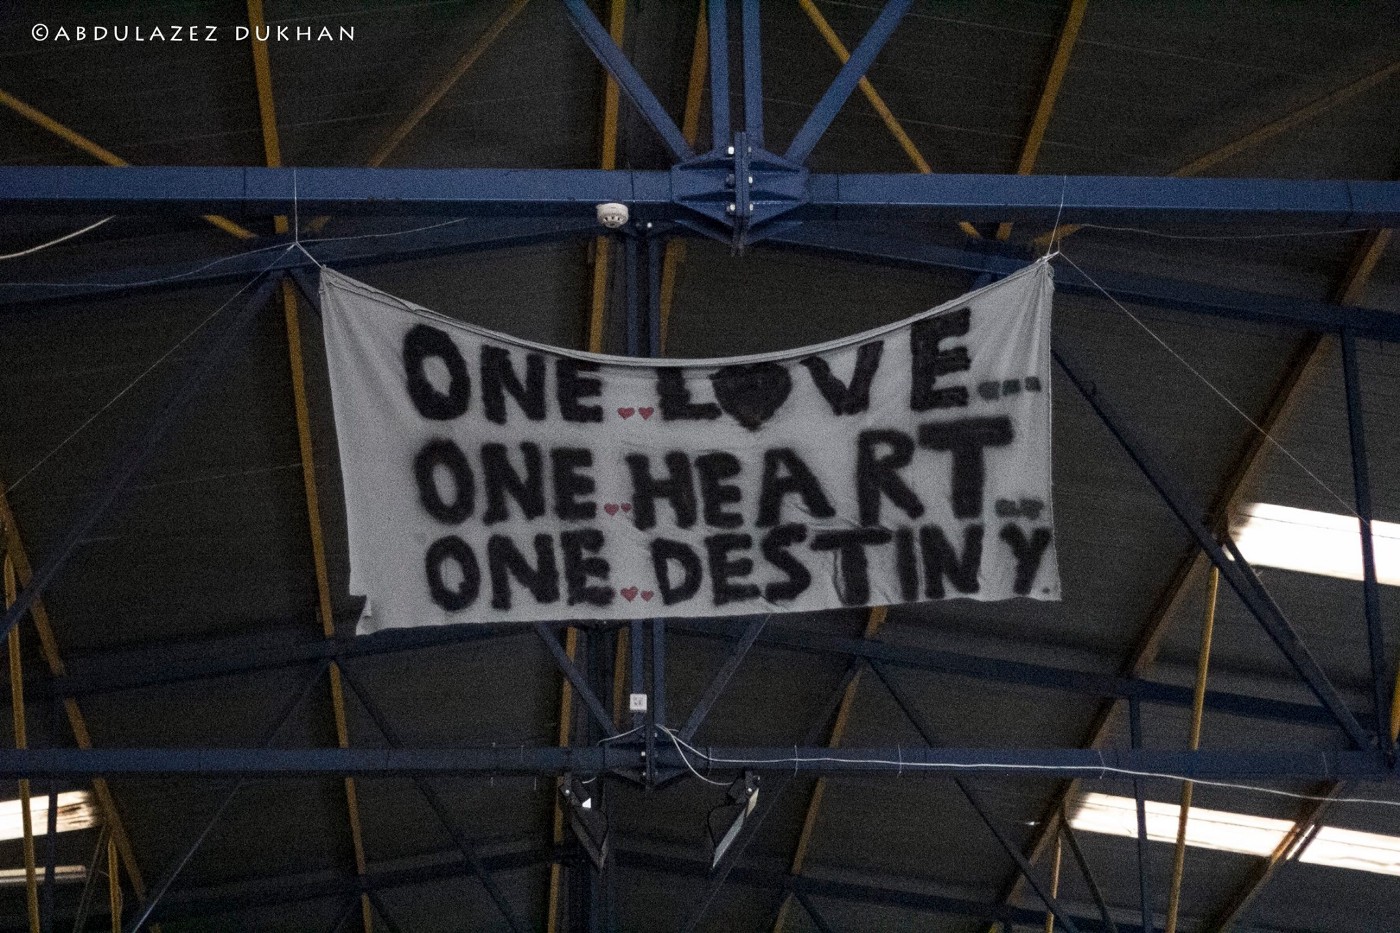 ©ABDULAZEZ DUKHAN
ONE.. LOVE...
ONE.. HEART...
ONE.. DESTINY.